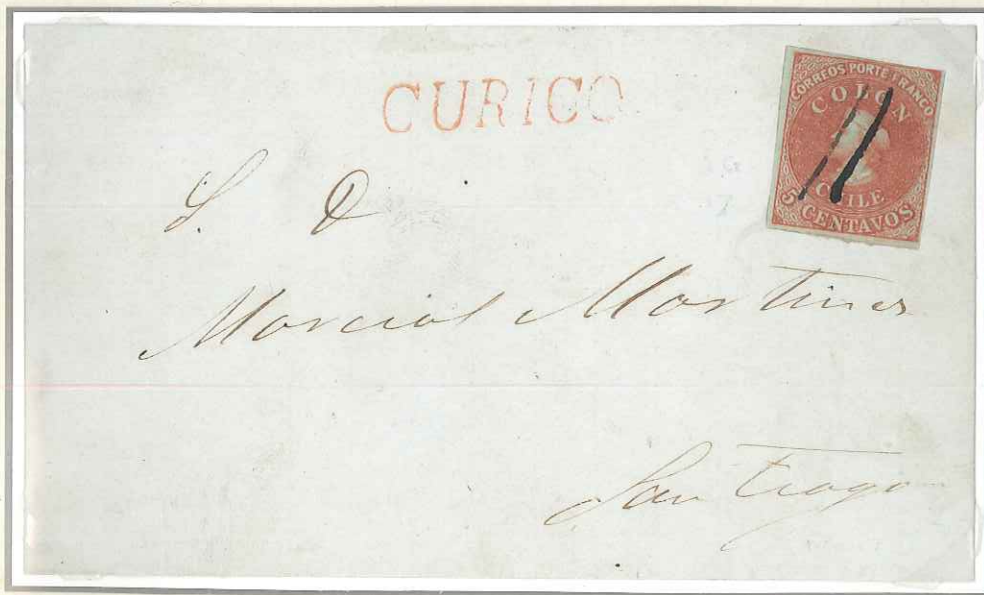 CURICO
CORREOS PORTE FRANCO
COLON
CHILE
5 CENTAVOS
S. D
Marcial Martines
Santiago